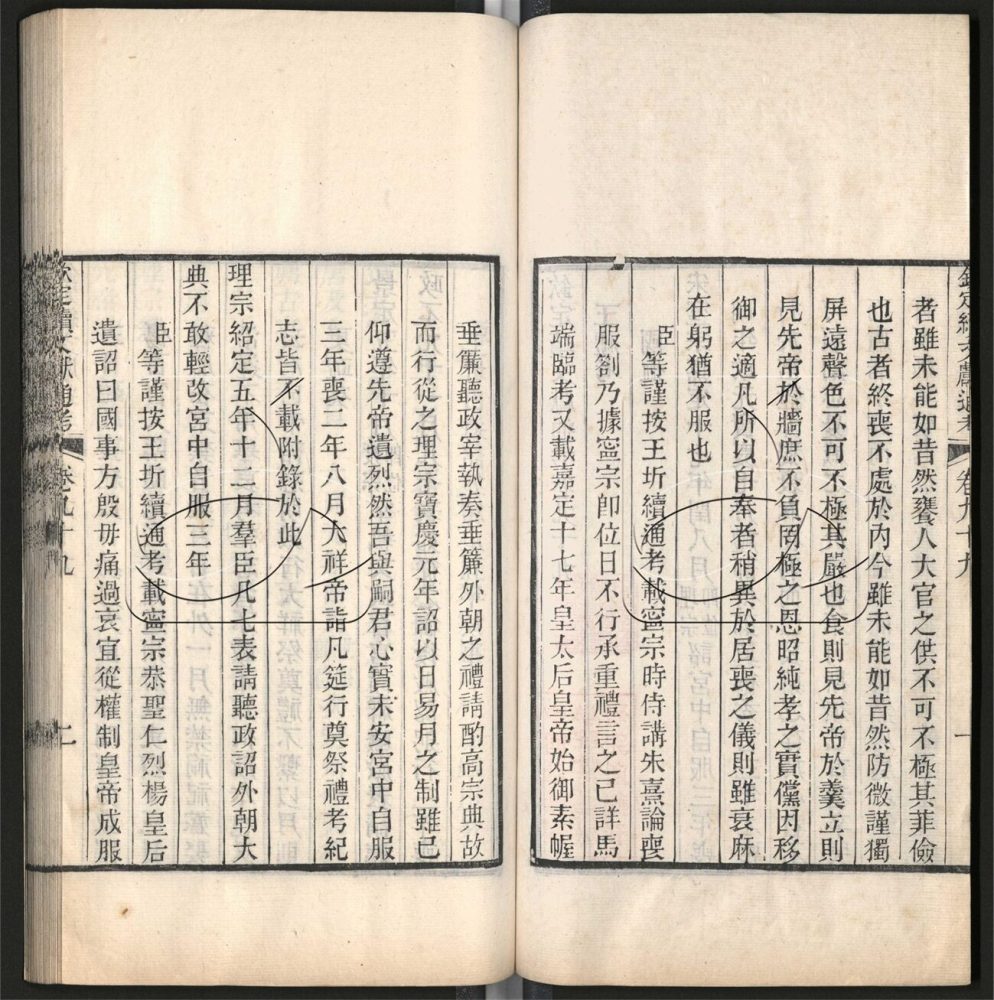 者雖未能如昔然饔人大官之供不可不極其菲儉
也古者終喪不處於內今雖未能如昔然防微謹獨
屏遠聲色不可不極其嚴也食則見先帝於羹立則
見先帝於牆庶不負罔極之恩昭純孝之實儻因移
御之適凡所以自奉者稍異於居喪之儀則雖衰麻
在躬猶不服也
臣等謹按王圻續通考載寧宗時侍講朱熹論喪
服劄乃據寧宗卽位日不行承重禮言之已詳馬
端臨考又載嘉定十七年皇太后皇帝始御素幄
欽定續文獻通考 卷九十九 一
垂簾聽政宰執奏垂簾外朝之禮請酌高宗典故
而行從之理宗寶慶元年詔以日易月之制雖已
仰遵先帝遺烈然吾與嗣君心實未安宮中自服
三年喪二年八月大祥帝詣几筵行奠祭禮考紀
志皆不載附錄於此
理宗紹定五年十二月羣臣凡七表請聽政詔外朝大
典不敢輕改宮中自服三年
臣等謹按王圻續通考載寧宗恭聖仁烈楊皇后
遺詔曰國事方殷毋痛過哀宜從權制皇帝成服
欽定續文獻通考 卷九十九 二